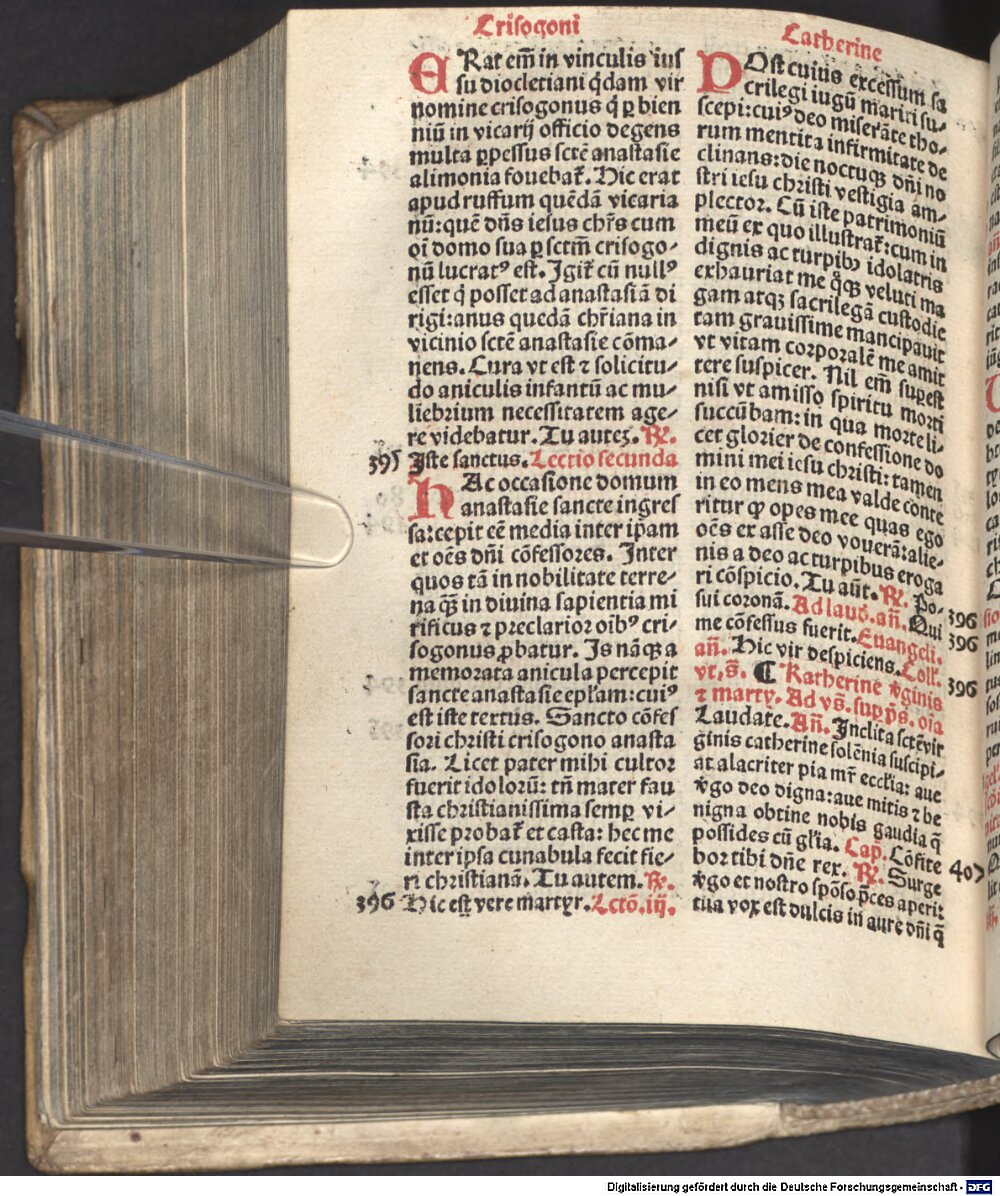 Crisogoni
ERat em̄ in vinculis iuſ
ſu diocletiani q̇dam vir
nomine criſogonus q̇ ꝑ bien
niū in vicarij officio degens
multa ꝑpeſſus ſctē anaſtaſie
alimonia fouebat̄. Hic erat
apud ruffum quēdā vicaria
nū: quē dn̄s ieſus chr̄s cum
oī domo ſua ꝑ ſctm̄ criſogo⸗
nū lucratꝰ eſt. Igit̄ cū nullꝰ
eſſet q̇ poſſet ad anaſtaſiā di
rigi: anus quedā chr̄iana in
vicinio ſctē anaſtaſie cōma⸗
nens. Cura vt eſt ⁊ ſolicitu⸗
do aniculis infantū ac mu⸗
liebrium neceſſitatem age⸗
re videbatur. Tu auteꝫ. ℟.
395 Iſte ſanctus. Lectio ſecunda
HAc occaſione domum
anaſtaſie ſancte ingreſ
ſa: cepit eē media inter ipam
et oēs dn̄i cōfeſſores. Inter
quos tā in nobilitate terre⸗
na qꝫ̄ in diuina ſapientia mi
rificus ⁊ preclarior oibꝰ cri⸗
ſogonus ꝓbatur. Is nāqꝫ a
memorata anicula percepit
ſancte anaſtaſie epl̄am: cuiꝰ
eſt iſte textus. Sancto cōfeſ
ſori chriſti criſogono anaſta
ſia. Licet pater mihi cultor
fuerit idolorū: tn̄ mater fau
ſta chriſtianiſſima ſemꝑ vi⸗
xiſſe probat̄ et caſta: hec me
inter ipſa cunabula fecit fie⸗
ri chriſtianā. Tu autem. ℟.
396 Hic eſt vere martyr. Lctō. iij.
Catherine
POſt cuius exceſſum ſa
crilegi iugū mariti ſu⸗
ſcepi: cuiꝰ deo miſerāte tho⸗
rum mentita infirmitate de
clinans: die noctuqꝫ dn̄i no
ſtri ieſu chriſti veſtigia am⸗
plector. Cū iſte patrimoniū
meū ex quo illuſtrat̄: cum in
dignis ac turpibꝫ idolatris
exhauriat me q̇qꝫ veluti ma
gam atqꝫ ſacrilegā cuſtodie
tam grauiſſime mancipauit
vt vitam corporalē me amit
tere ſuſpicer. Nil em̄ ſupeſt
niſi vt amiſſo ſpiritu morti
ſuccūbam: in qua morte li⸗
cet glorier de confeſſione do
mini mei ieſu chriſti: tamen
in eo mens mea valde conte
ritur ꝙ opes mee quas ego
oēs ex aſſe deo vouerā: alie⸗
nis a deo ac turpibus eroga
ri cōſpicio. Tu aūt. ℟. Po⸗
ſui coronā. Ad laud. an̄. Qui 396
me cōfeſſus fuerit. Euangeli. 396
an̄. Hic vir deſpiciens. Coll̄.
vt, s̄. ¶ Katherine v̇ginis 396
⁊ marty. Ad vs̄. ſuꝑ ps̄. oīa
Laudate. An̄. Inclita ſctē vir
ginis catherine ſolēnia ſuſcipi⸗
at alacriter pia mr̄ eccl̄ia: aue
v̇go deo digna: aue mitis ⁊ be
nigna obtine nobis gaudia q̄
poſſides cū gl̄ia. Cap̄. Cōfite
bor tibi dn̄e rex. ℟. Surge 407
v̇go et noſtro ſpōſo p̄ces aperi:
tua vox eſt dulcis in aure dn̄i q̄
Digitalisierung gefördert durch die Deutsche Forschungsgemeinschaft - DFG